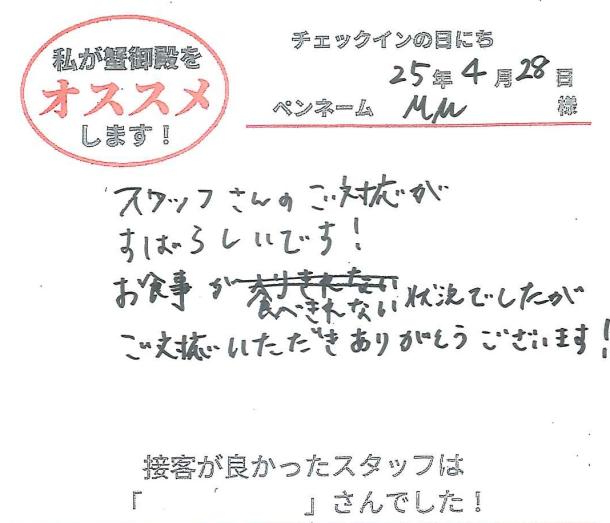 私が蟹御殿を
オススメ
します！
チェックインの日にち
25年4月28日
ペンネーム MM 様
スタッフさんのご対応が
すばらしいです！
お食事が食べきれない状況でしたが
ご対応いただきありがとうございます！
接客が良かったスタッフは
「　　　　　」さんでした！